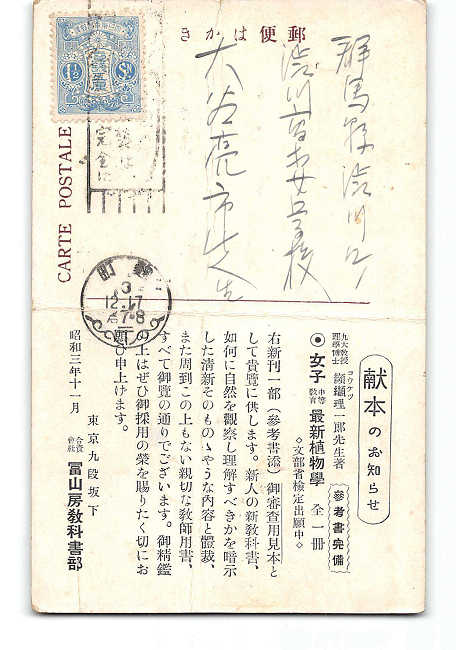 きかは便郵
CARTE POSTALE
1½ Sn
完全に
群馬縣渋川町
渋川高等女学校
大谷亮市先生
麹町
3
12.17
后7-8
献本のお知らせ
參考書完備
九大敎授
理學博士
コウケツ
纐纈理一郎先生著
◉女子中等敎育最新植物學 全一冊
◇文部省檢定出願中◇
右新刊一部（參考書添）御審査用見本と
して貴覽に供します。新人の新敎科書、
如何に自然を觀察し理解すべきかを暗示
した清新そのものゝやうな內容と體裁、
また周到この上もない親切な敎師用書、
すべて御覽の通りでございます。御精鑑
の上はぜひ御採用の榮を賜りたく切にお
願ひ申上げます。
昭和三年十一月
東京九段坂下
合資會社 冨山房敎科書部